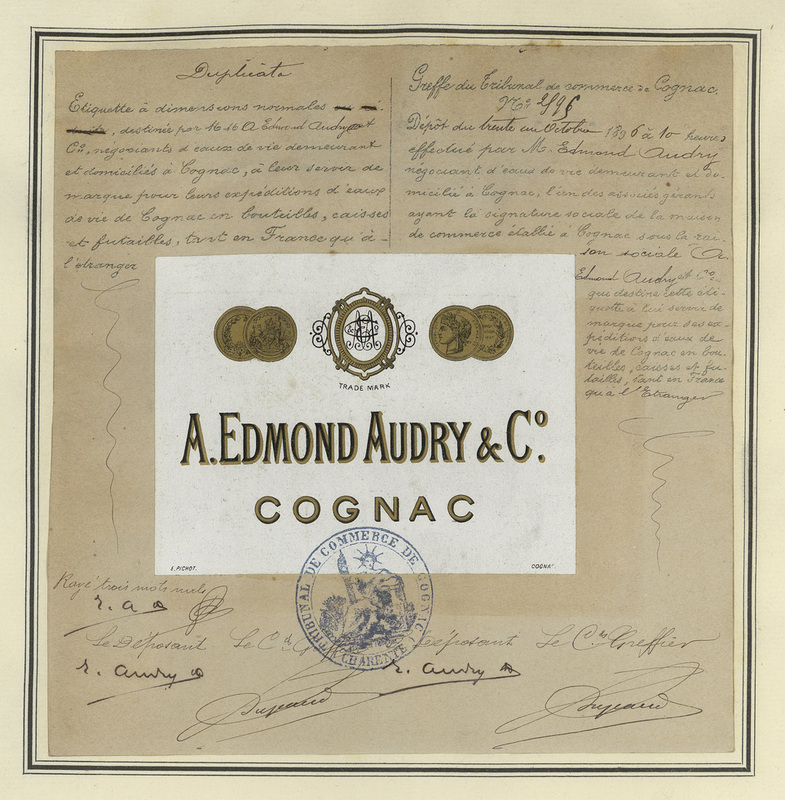 Duplicata
Etiquette à dimensions normales
destinée par M. A Edmond Audry et
Co, négociants d'eaux de vie demeurant
et domiciliés à Cognac, à leur servir de
marque pour leurs expéditions d'eaux
de vie de Cognac en bouteilles, caisses
et futailles, tant en France qu'à
l'étranger
Greffe du Tribunal de commerce de Cognac.
Dépôt du trente un Octobre 1896 à 10 heures
effectué par M. Edmond Audry
négociant d'eaux de vie demeurant et do-
micilié à Cognac, l'un des associés gérants
ayant la signature sociale de la maison
de commerce établie à Cognac sous la rai-
son sociale A.
Edmond Audry et Co.
qui destine cette éti-
quette à lui servir de
marque pour ses ex-
péditions d'eaux de
vie de Cognac en bou-
teilles, caisses et fu-
tailles, tant en France
qu'à l'Etranger
TRADE MARK
A. EDMOND AUDRY & Co.
COGNAC
E. PICHOT.
COGNAC
TRIBUNAL DE COMMERCE DE COGNAC
CHARENTE
Rayé trois mots nuls
E. A
Le Déposant
Le Déposant
Le Cis Greffier
E. Audry
E. Audry